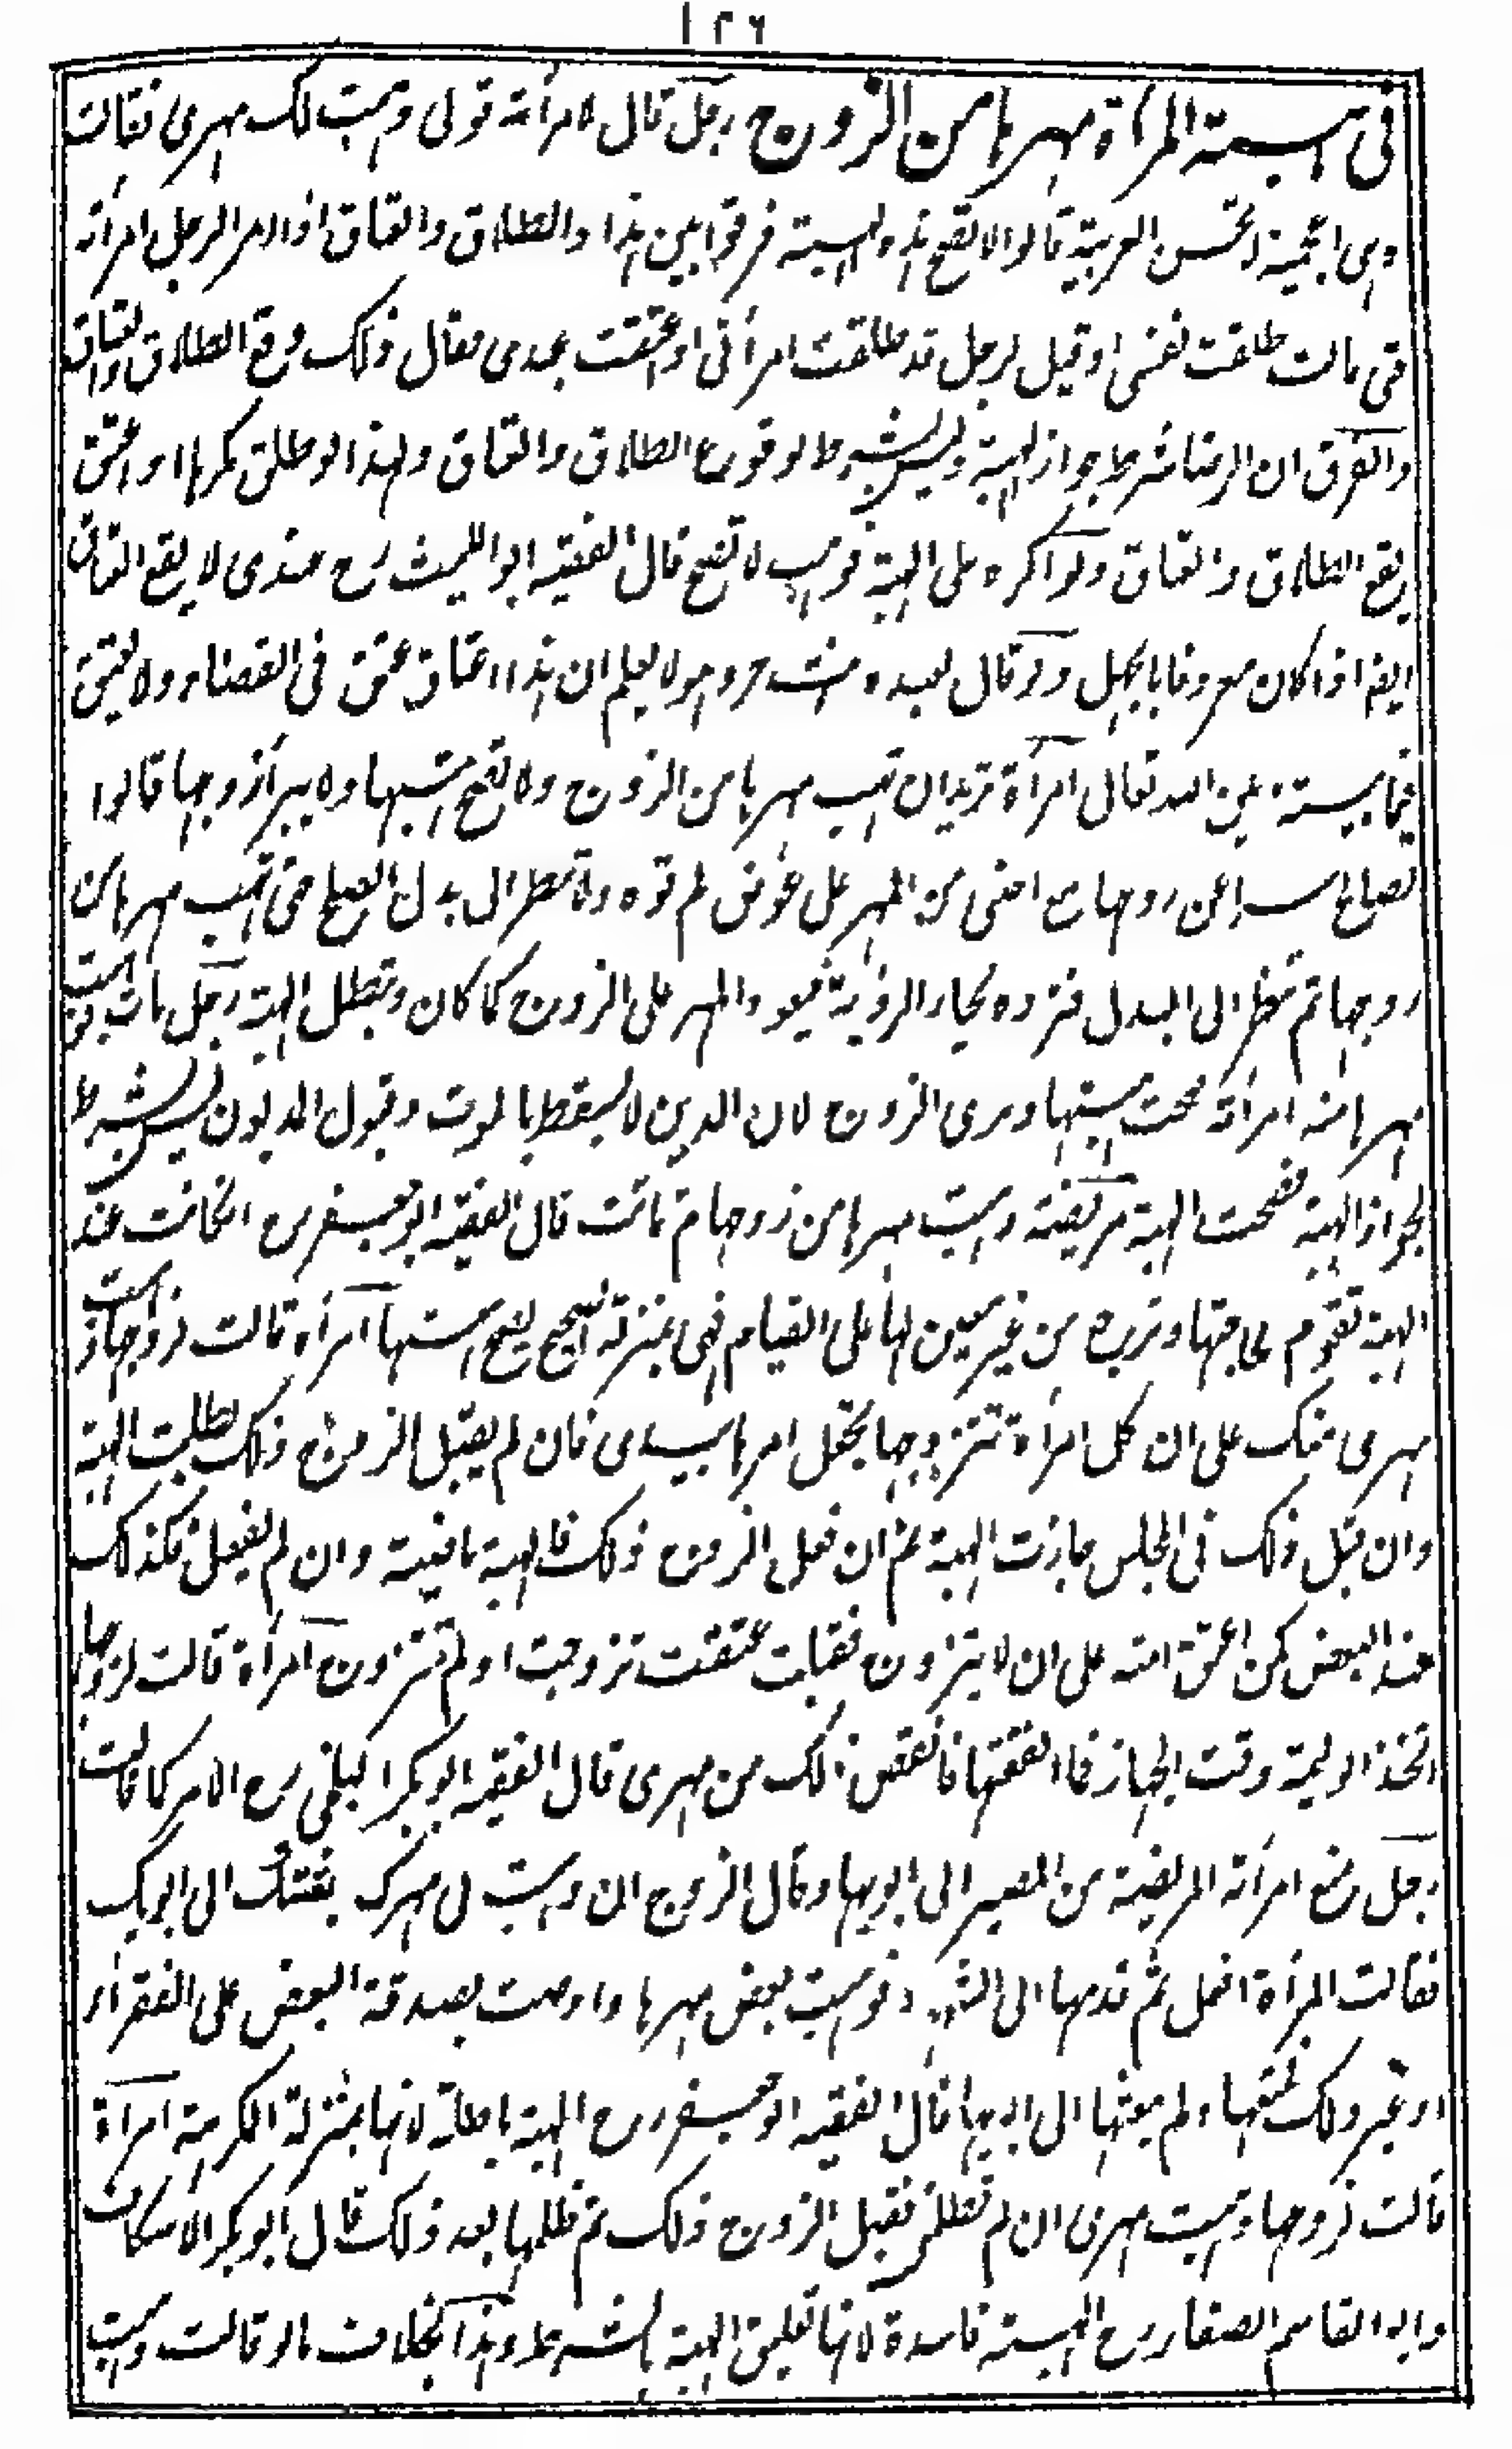 ١٢٦
في هبة المرأة مهرها من الزوج رجل قال لامرأته قولى وهبت لك مهرى فقالت
وهى اعجمية لا تحسن العربية قالوا لا تصح هذه الهبة فرقوا بين هذا والطلاق والعتاق اذا امر الرجل امرأته
حتى قالت طلقت نفسى او قيل لرجل قد طلقت امرأتى او اعتقت عبدى فقال ذلك وقع الطلاق والعتاق
والفرق ان الرضا شرط جواز الهبة وليس بشرط لوقوع الطلاق والعتاق ولهذا لو طلق مكرها او اعتق
يقع الطلاق والعتاق ولو اكره على الهبة فوهب لا تصح قال الفقيه ابو الليث رح عندى لا يقع العتاق
ايضا اذا كان معروفا بالجهل ولو قال لعبده انت حر وهو لا يعلم ان هذا اعتاق عتق فى القضاء ولا يعتق
فيما بينه وبين الله تعالى امرأة تريد ان تهب مهرها من الزوج ولا تصح هبتها ولا يبرأ زوجها قالوا
تصالح عن زوجها مع اجنى من المهر على عوض لم تره ولا تنظر الى بدل الصلح حتى تهب مهرها من
زوجها ثم تنظر الى البدل فترده بخيار الرؤية فيعود المهر على الزوج كما كان وتبطل الهبة رجل مات فوهبت
مهرها منه امرأته صحت هبتها وبرى الزوج لان الدين لا يسقط بالموت وقبول المديون ليس بشرط
لجواز الهبة فصحت الهبة مريضة وهبت مهرها من زوجها ثم ماتت قال الفقيه ابو جعفر رح ان كانت عند
الهبة تقوم لحاجتها وترجع من غير معين لها على القيام فهى بمنزلة الصحيح يصح هبتها امرأة قالت لزوجها تركت
مهرى منك على ان كل امرأة تتزوجها تجعل امرها بيدى فان لم يقبل الزوج ذلك بطلت الهبة
وان قبل ذلك فى المجلس جازت الهبة ثم ان فعل الزوج ذلك فالهبة ماضية وان لم يفعل فكذلك
عند البعض كمن اعتق امته على ان لا يتزوج فقبلت عتقت تزوجت او لم تتزوج امرأة قالت لزوجها
اتخذ الوليمة وقت الجهاز فما انفقتها فانقص ذلك من مهرى قال الفقيه ابو بكر البلخى رح الامر كما قالت
رجل منع امرأته المريضة من المصير الى ابويها وقال الزوج ان وهبت لى مهرك بعثتك الى ابويك
فقالت المرأة افعل ثم قدمها الى الشهود فوهبت بعض مهرها واوصت بصدقة البعض على الفقراء
او غير ذلك ثم منعها ولم يبعثها الى ابويها قال الفقيه ابو جعفر رح الهبة باطلة لانها بمنزلة المكرهة امرأة
قالت لزوجها وهبت مهرى ان لم تظلمنى فقبل الزوج ذلك ثم ظلمها بعد ذلك قال ابو بكر الاسكاف
وابو القاسم الصفار رح الهبة فاسدة لانها تعليق الهبة بالشرط وهذا بخلاف ما لو قالت وهبت